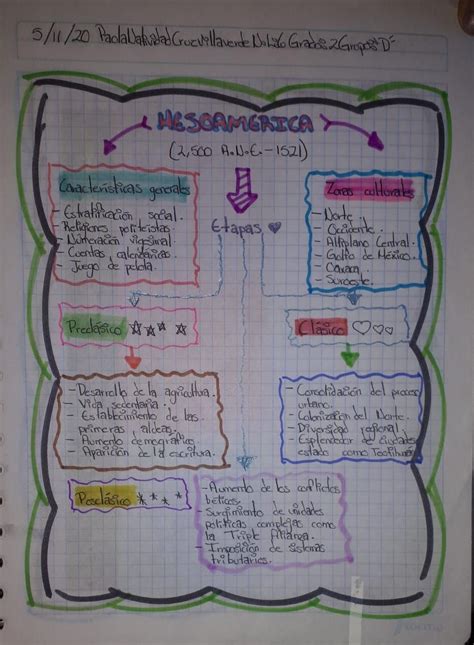 5/11/20 Paola Natividad Cruz Villaverde N.L: Grado: 2 Grupo: "D"
MESOAMERICA
(2,500 A.N.E.-1521)
Características generales
- Estratificación social.
- Religiones politeistas.
- Numeración vigesimal
- Cuentas calendáricas.
- Juego de pelota.
Etapas
Zonas culturales
- Norte
- Occidente.
- Altiplano Central.
- Golfo de México.
- Oaxaca
- Suroeste.
Preclásico
Clásico
- Desarrollo de la agricultura.
- Vida sedentaria.
- Establecimiento de las
primeras aldeas.
- Aumento demografico
- Aparición de la escritura.
- Consolidación del proceso
urbano.
- Colonización del Norte.
- Diversidad regional.
- Esplendor de ciudades
estado como
Posclásico
- Aumento de los conflictos
belicos.
- Surgimiento de unidades
politicas complejas como
la Triple Alianza.
- Imposición de sistemas
tributarios.